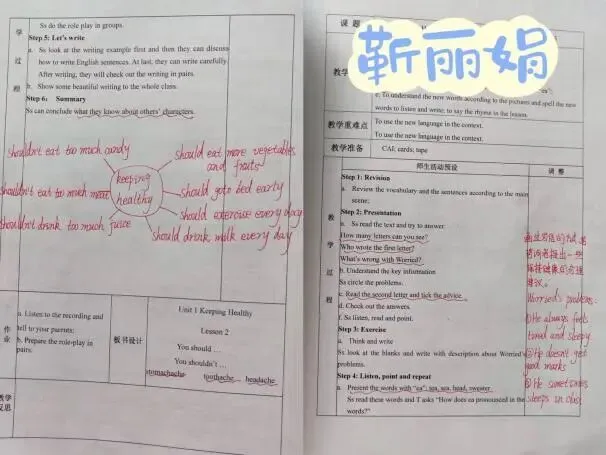 Ss do the role play in groups.
Step 5: Let's write
a. Ss look at the writing example first and then they can discuss
how to write English sentences. At last, they can write carefully.
After writing, they will check out the writing in pairs.
b. Show some beautiful writing to the whole class.
Step 6: Summary
Ss can conclude what they know about others' characters.
学
过
程
shouldn't eat too much candy
shouldn't eat too much meat
shouldn't drink too much juice
keeping
healthy
should eat more vegetables
and fruits
should go to bed early
should exercise every day
should drink milk every day
作
业
a. Listen to the recording and
tell to your parents;
b. Prepare the role-play in
pairs.
板书设计
Unit 1 Keeping Healthy
Lesson 2
You should …
You shouldn't …
stomachache toothache headache
教学
反思
课 题
靳丽娟
教学
c. To understand the new words according to the pictures and spell the
new words to listen and write; to say the rhyme in the lesson.
教学重难点
To use the new language in the context.
To use the new language in the context.
教学准备
CAI; cards; tape
师生活动预设
调 整
教
学
过
程
Step 1: Revision
a. Review the vocabulary and the sentences according to the main
scene;
Step 2: Presentation
a. Ss read the text and try to answer:
How many letters can you see?
Who wrote the first letter?
What's wrong with Worried?
b. Understand the key information
Ss circle the problems.
c. Read the second letter and tick the advice.
d. Check out the answers.
f. Ss listen, read and point.
Step 3: Exercise
a. Think and write
Ss look at the blanks and write with description about Worried's
problem.
Step 4: Listen, point and repeat
a. Present the words with "ea": tea, sea, head, sweater
Ss read these words and T asks "How does ea pronounced in the
words?"
建议。
Worried's problems:
①He always feels
tired and sleepy
②He doesn't get
good marks
③He sometimes
sleeps in class